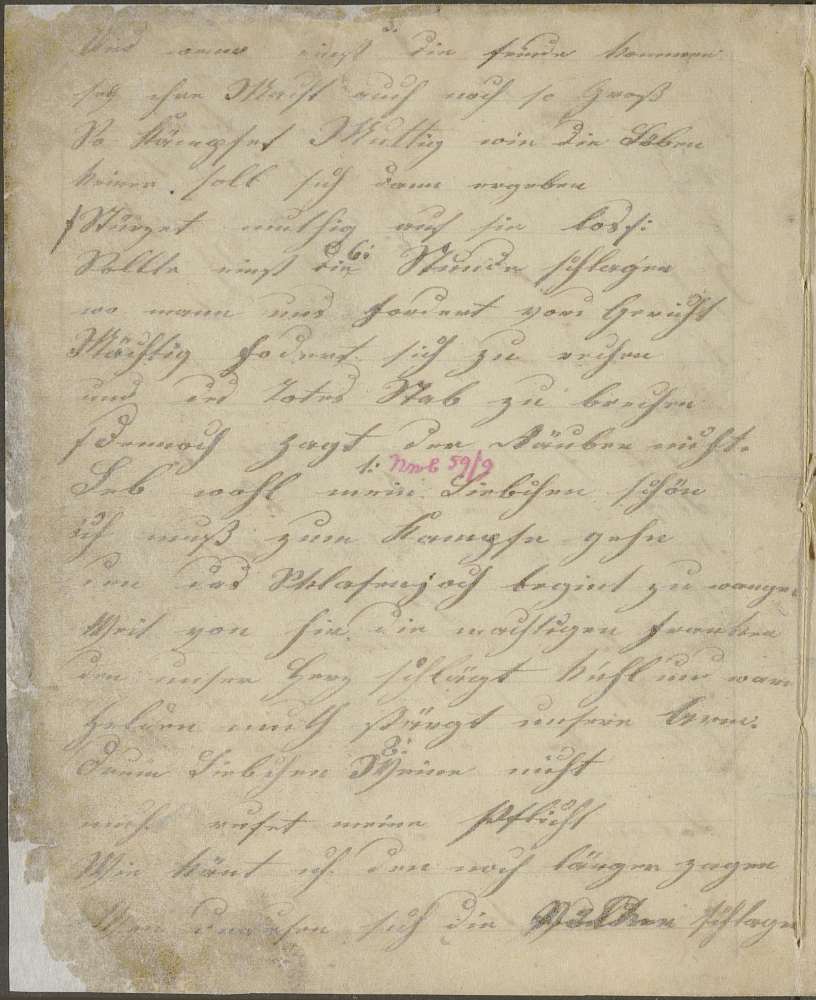 Und wenn einst die feinde kommen
sey ihre Macht auch noch so Groß
So kämpfet Muthig wie die Löben
keiner soll sich dann ergeben
Stürzet muthig auf sie los:
6:
Sollte einst die Stunde schlagen
wo mann uns fordert vors Gericht
Mächtig fodert sich zu rechen
und des Todes Stab zu brechen
Dennoch zagt der Räuber nicht.
1: NNE 59/9
Leb wohl mein Liebchen schön
ich muß zum Kampfe gehn
den das Sklafenjoch begint zu wange
Weit von hir die machtigen franken
den unser Herz schlägt kühl und warm
Helden muth stärgt unsere Arm.
2:
Drum Liebchen Weine nicht
mich rufet meine Pflicht
Wie könt ich den noch länger zagen
Wen sich die schlagen